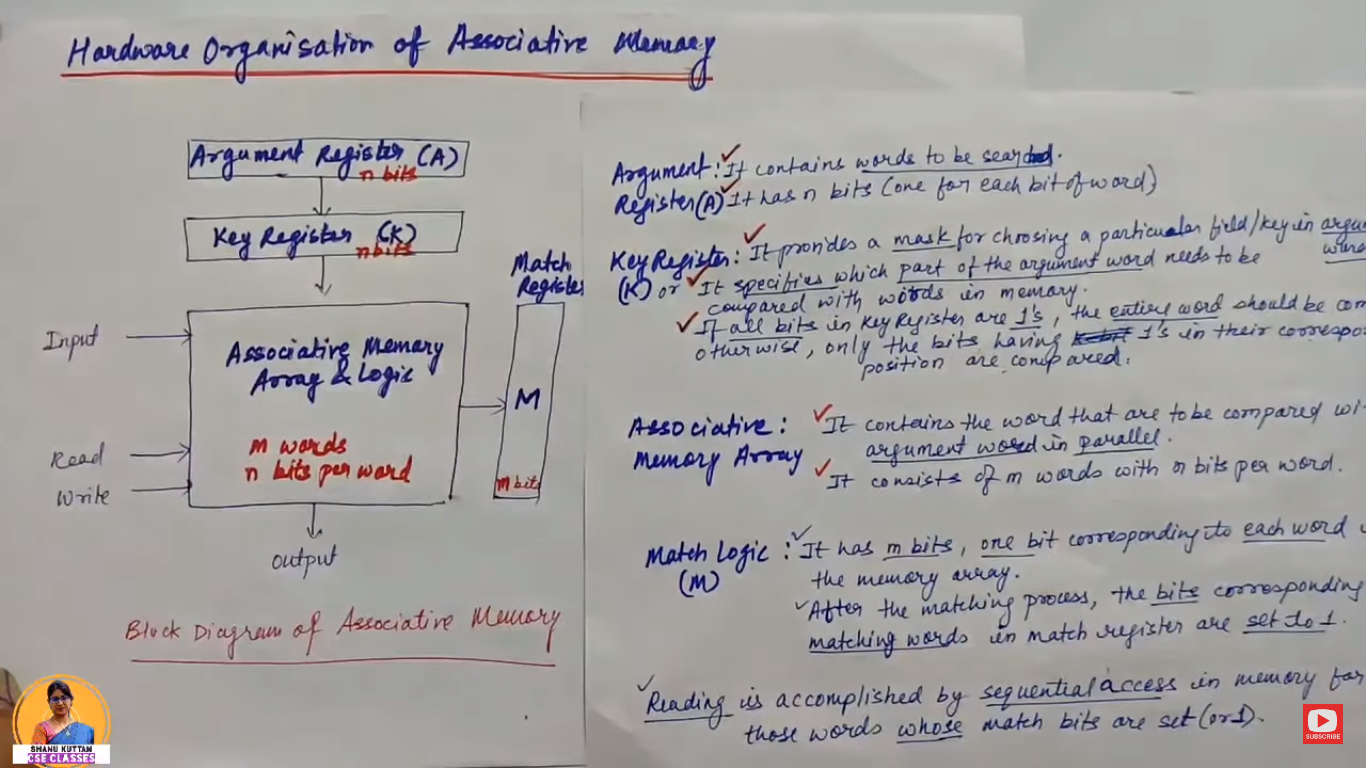 Hardware Organisation of Associative Memory
Argument Register (A)
n bits
Key Register (K)
n bits
Match
Register
Input
Associative Memory
Array & Logic
M
m words
n bits per word
Read
Write
m bits
output
Block Diagram of Associative Memory
Argument : It contains words to be searched.
Register (A) It has n bits (one for each bit of word)
Key Register : It provides a mask for choosing a particular field/key in argu
word
(K) or It specifies which part of the argument word needs to be
compared with words in memory.
If all bits in Key Register are 1's, the entire word should be com
otherwise, only the bits having 1's in their correspo
position are compared.
Associative : It contains the word that are to be compared wi
Memory Array argument word in parallel.
It consists of m words with n bits per word.
Match Logic : It has m bits, one bit corresponding to each word i
(M) the memory array.
After the matching process, the bits corresponding
matching words in match register are set to 1.
Reading is accomplished by sequential access in memory for
those words whose match bits are set (or 1).
SHANU KUTTAN
CSE CLASSES
SUBSCRIBE